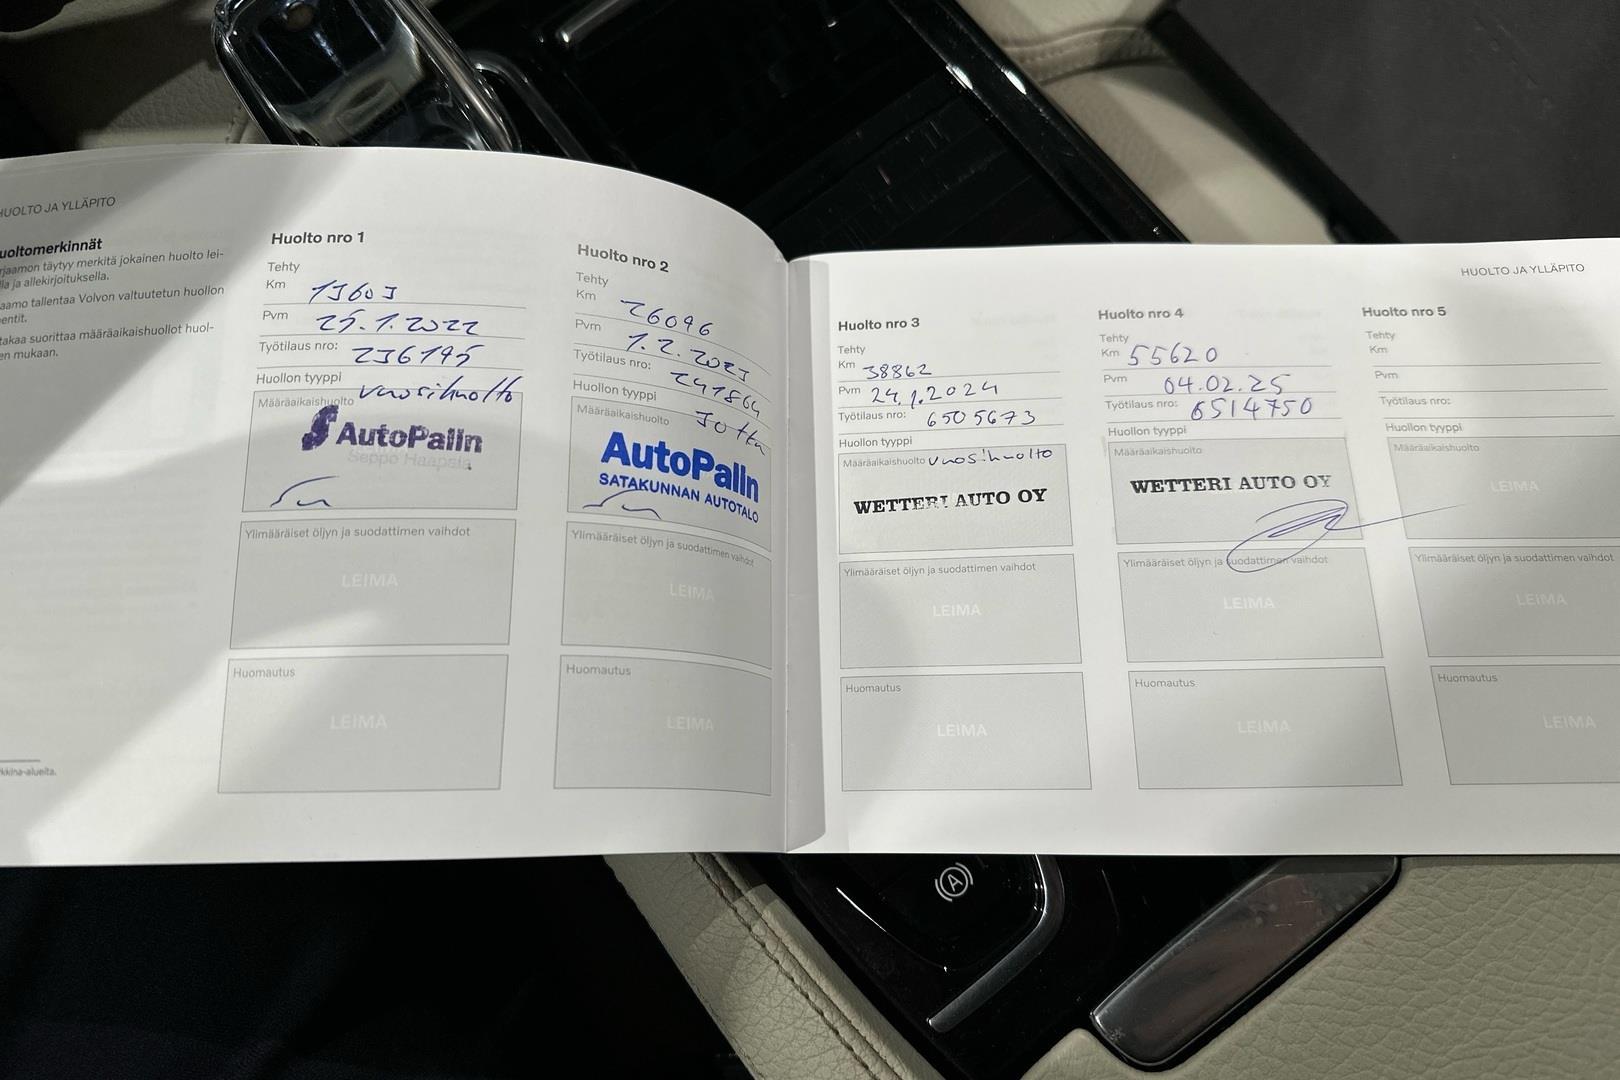 HUOLTO JA YLLÄPITO
uoltomerkinnät
rjaamon täytyy merkitä jokainen huolto lei-
lla ja allekirjoituksella.
aamo tallentaa Volvon valtuutetun huollon
entit.
takaa suorittaa määräaikaishuollot huol-
en mukaan.
kkina-alueita.
Huolto nro 1
Tehty
Km 13603
Pvm 25.1.2022
Työtilaus nro: 236195
Huollon tyyppi
Määräaikaishuolto vuosihuolto
AutoPalin
Seppo Haapala
Ylimääräiset öljyn ja suodattimen vaihdot
LEIMA
Huomautus
LEIMA
Huolto nro 2
Tehty
Km 26096
Pvm 1.2.2023
Työtilaus nro: 241864
Huollon tyyppi
Määräaikaishuolto
AutoPalin
SATAKUNNAN AUTOTALO
Ylimääräiset öljyn ja suodattimen vaihdot
LEIMA
Huomautus
LEIMA
HUOLTO JA YLLÄPITO
Huolto nro 3
Tehty
Km 38862
Pvm 24.1.2024
Työtilaus nro: 6505673
Huollon tyyppi
Määräaikaishuolto vuosihuolto
WETTERI AUTO OY
Ylimääräiset öljyn ja suodattimen vaihdot
LEIMA
Huomautus
LEIMA
Huolto nro 4
Tehty
Km 55620
Pvm 04.02.25
Työtilaus nro: 6514750
Huollon tyyppi
Määräaikaishuolto
WETTERI AUTO OY
Ylimääräiset öljyn ja suodattimen vaihdot
LEIMA
Huomautus
LEIMA
Huolto nro 5
Tehty
Km
Pvm
Työtilaus nro:
Huollon tyyppi
Määräaikaishuolto
LEIMA
Ylimääräiset öljyn ja suodattimen vaihdot
LEIMA
Huomautus
LEIMA
A